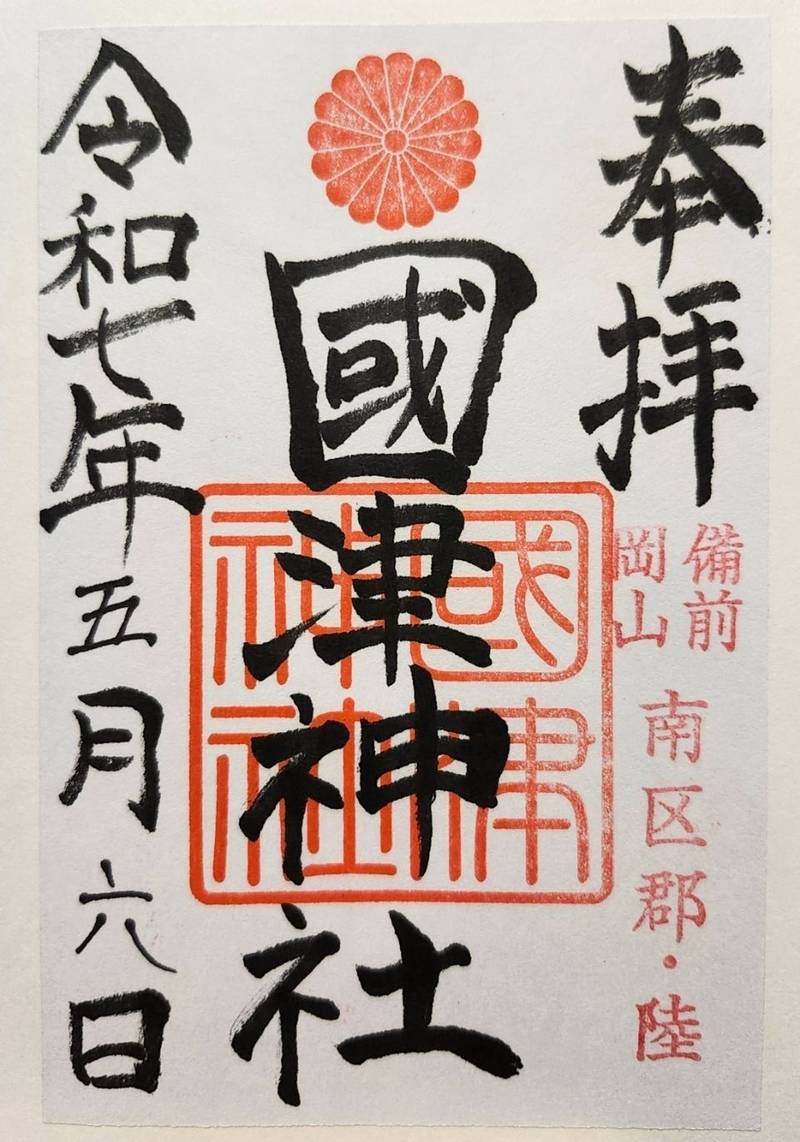 奉拝
備前
岡山
南区郡・陸
國津神社
國津
神社
令和七年五月六日